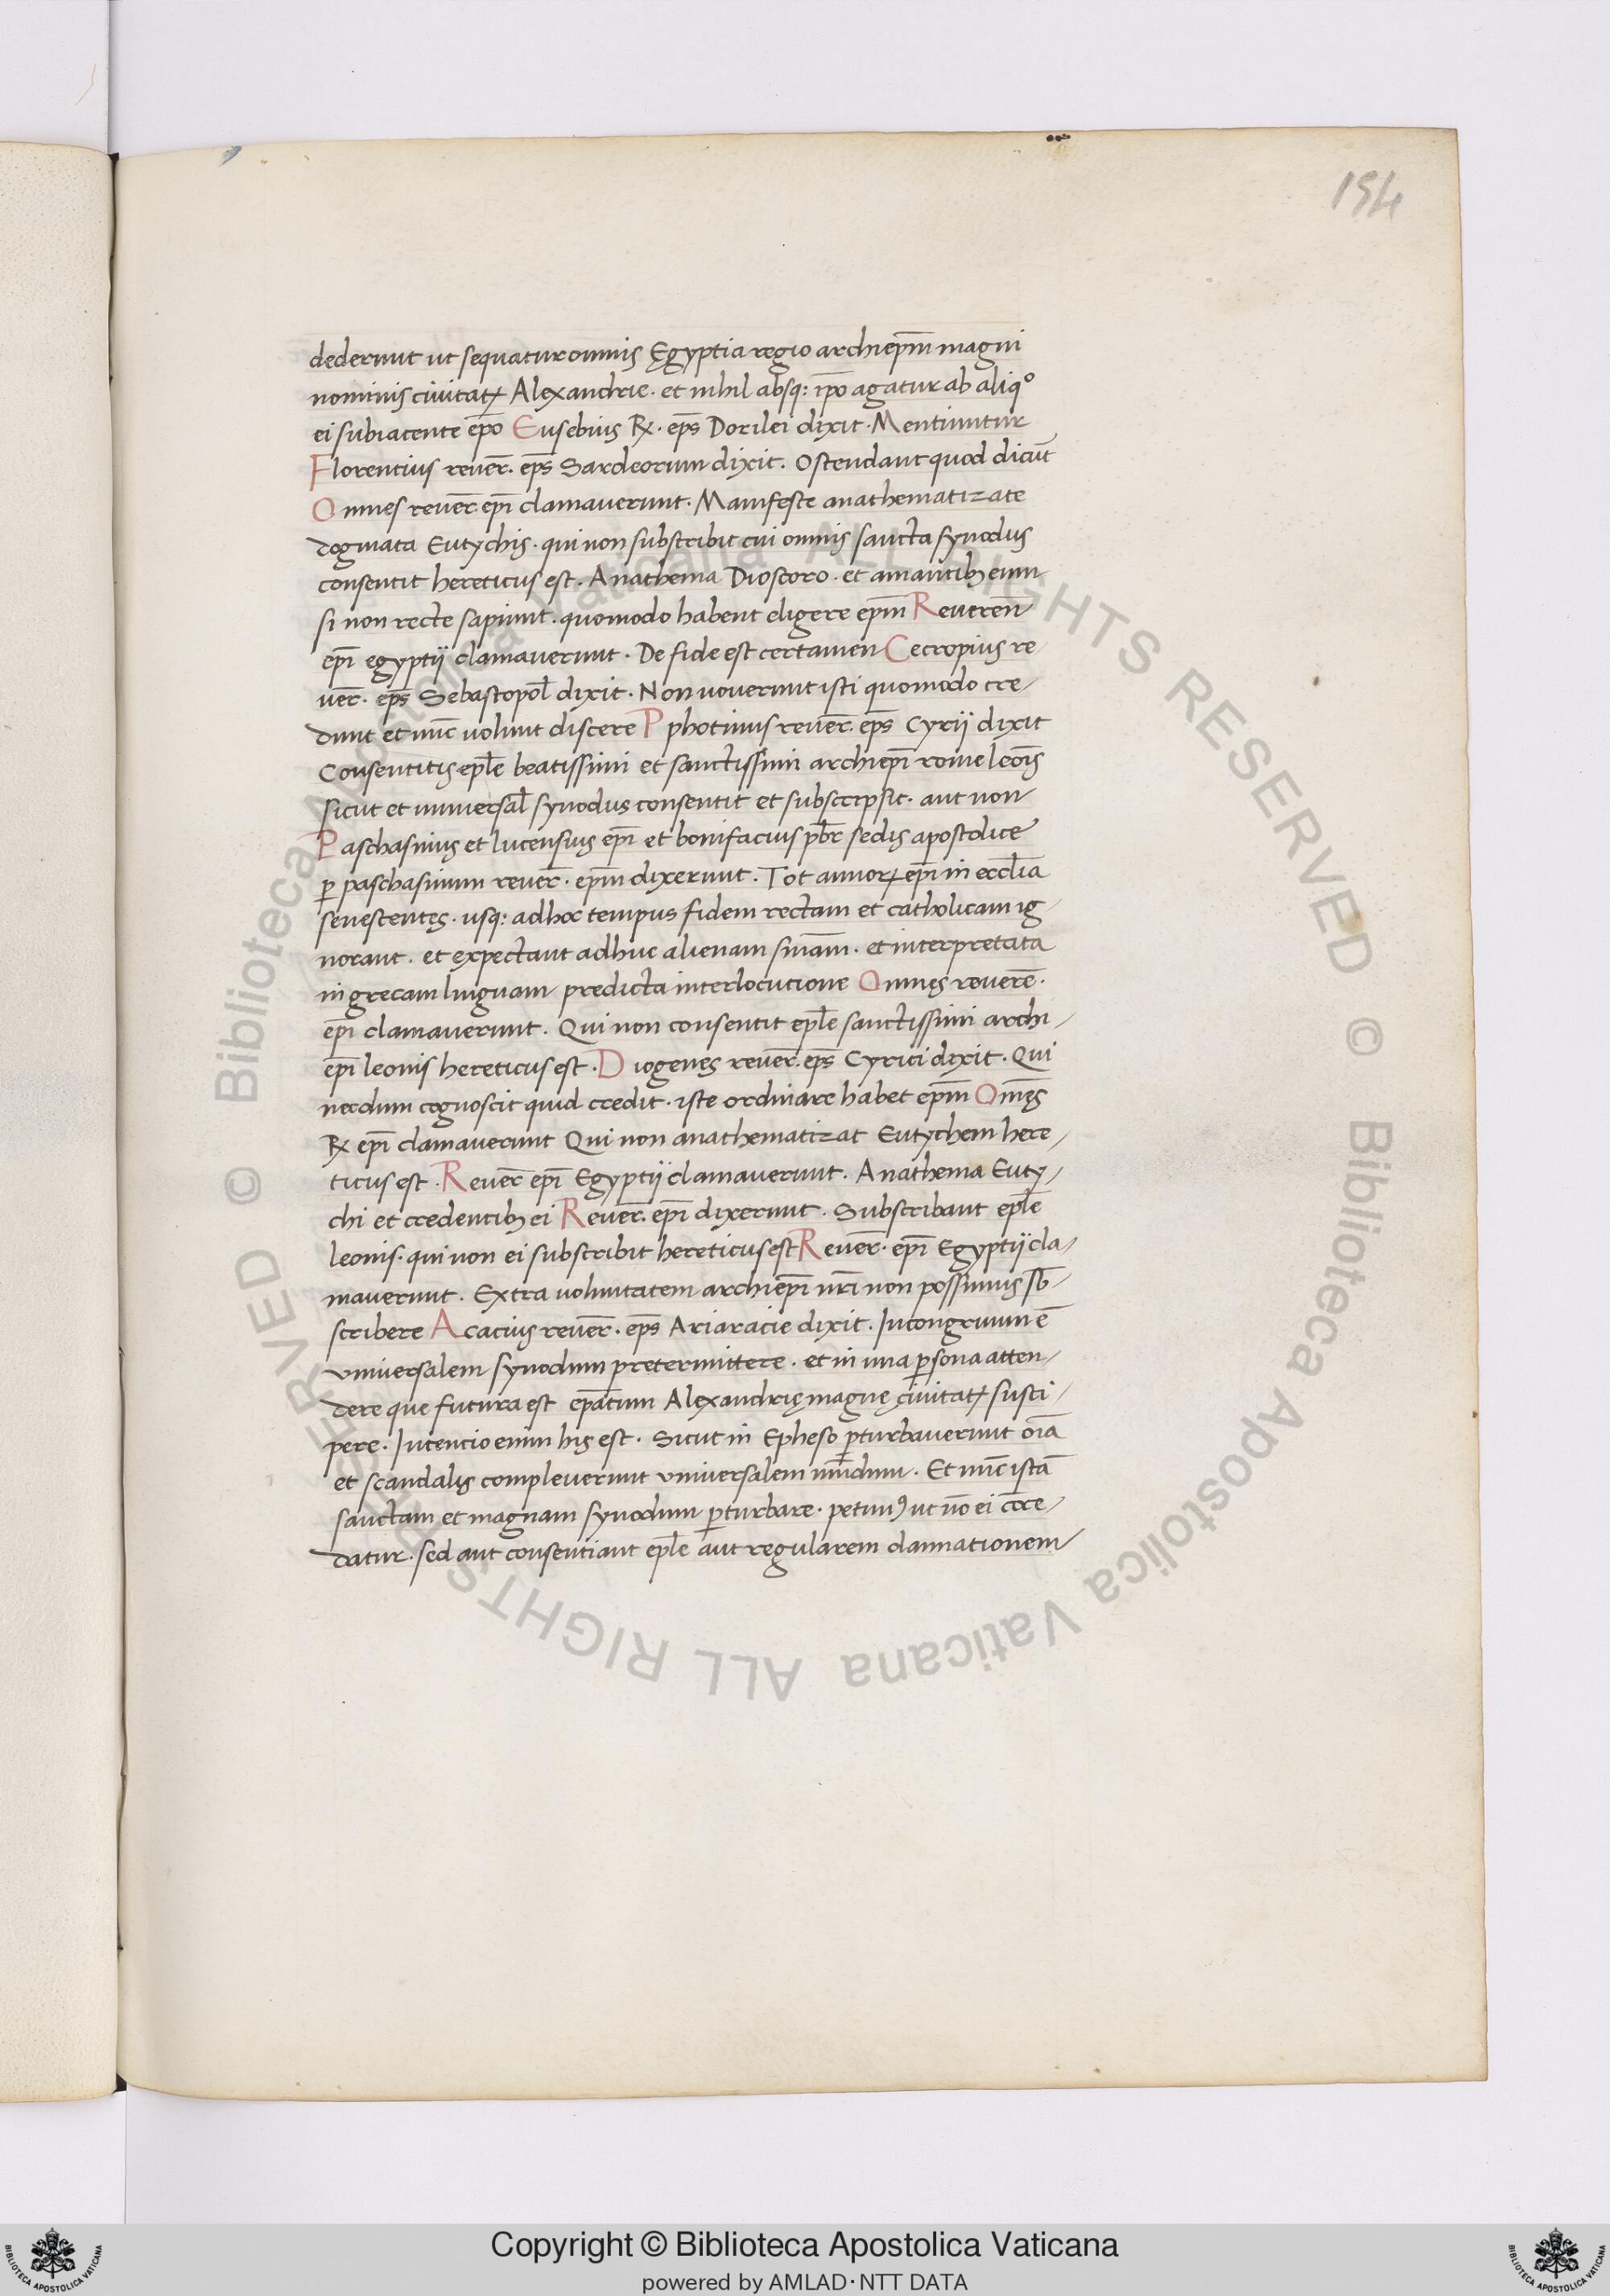 154
dederunt ut sequatur omnis Ęgyptia regio archiep̄m magni
nominis ciuitatꝭ Alexandrie· et nihil absq: ip̄o agatur ab aliqº
ei subiacente ep̄o Eusebius R̶· ep̄s Dorilei dixit· Mentiuntur
Florentius reuer̄· ep̄s Sardeorum dixit· Ostendant quod dicūt
Omnes reuer̄ ep̄i clamauerunt· Manifeste anathematizate
dogmata Eutychis· qui non subscribit cui omnis sancta synodus
consentit hereticus est· Anathema Dioscoro· et amantibꝫ eum
si non recte sapiunt· quomodo habent eligere ep̄m Reueren̄
ep̄i egyptij clamauerunt· De fide est certamen Cecropius re-
uer̄· ep̄s Sebastopol̄ dixit· Non nouerunt isti quomodo cre-
dunt et nūc uolunt discere Pphotinus reuer̄· ep̄s Cyrij dixit
Consentitis ep̄le beatissimi et sanctissimi archiep̄i rome leōis
sicut et uniuersal̄ synodus consentit et subscripsit· aut non
Paschasinus et lucensius ep̄i et bonifacius pb̄r sedis apostolice
ꝑ paschasinum reuer̄· ep̄m dixerunt· Tot annoꝝ ep̄i in eccl̄ia
senescentes· usq: adhoc tempus fidem rectam et catholicam ig-
norant· et expectant adhuc alienam sn̄iam· et interpretata
in grecam linguam predicta interlocutione Omnes reuerē·
ep̄i clamauerunt· Qui non consentit ep̄le sanctissimi archi-
ep̄i leonis hereticus est· Diogenes reuer̄· ep̄s Cyzici dixit· Qui
necdum cognoscit quid credit· iste ordinare habet ep̄m Om̄es
R̶ ep̄i clamauerunt Qui non anathematizat Eutychem here-
ticus est· Reuer̄ ep̄i Egyptij clamauerunt· Anathema Euty-
chi et credentibꝫ ei Reuer̄· ep̄i dixerunt· Subscribant ep̄le
leonis· qui non ei subscribit hereticus est Reuer̄· ep̄i Egyptij cla-
mauerunt· Extra uoluntatem archiep̄i nr̄i non possumus sb̄-
scribere Acacius reuer̄· ep̄s Ariaracie dixit· Incongruum ē
uniuersalem synodum pretermittere· et in una ꝑsona atten-
dere que futura est ep̄atum Alexandrię magnę ciuitatꝭ susci-
pere· Intencio enim his est· Sicut in Epheso ꝑturbauerunt oīa
et scandalis compleuerunt uniuersalem mūdum· Et nūc istā
sanctam et magnam synodum ꝑturbare· petimꝰ ut nō ei cōce-
datur· sed aut consentiant ep̄le aut regularem damnationem
© Biblioteca Apostolica Vaticana ALL RIGHTS RESERVED © Biblioteca Apostolica Vaticana ALL RIGHTS RESERVED
Copyright © Biblioteca Apostolica Vaticana
powered by AMLAD·NTT DATA
BIBLIOTECA APOSTOLICA VATICANA
BIBLIOTECA APOSTOLICA VATICANA